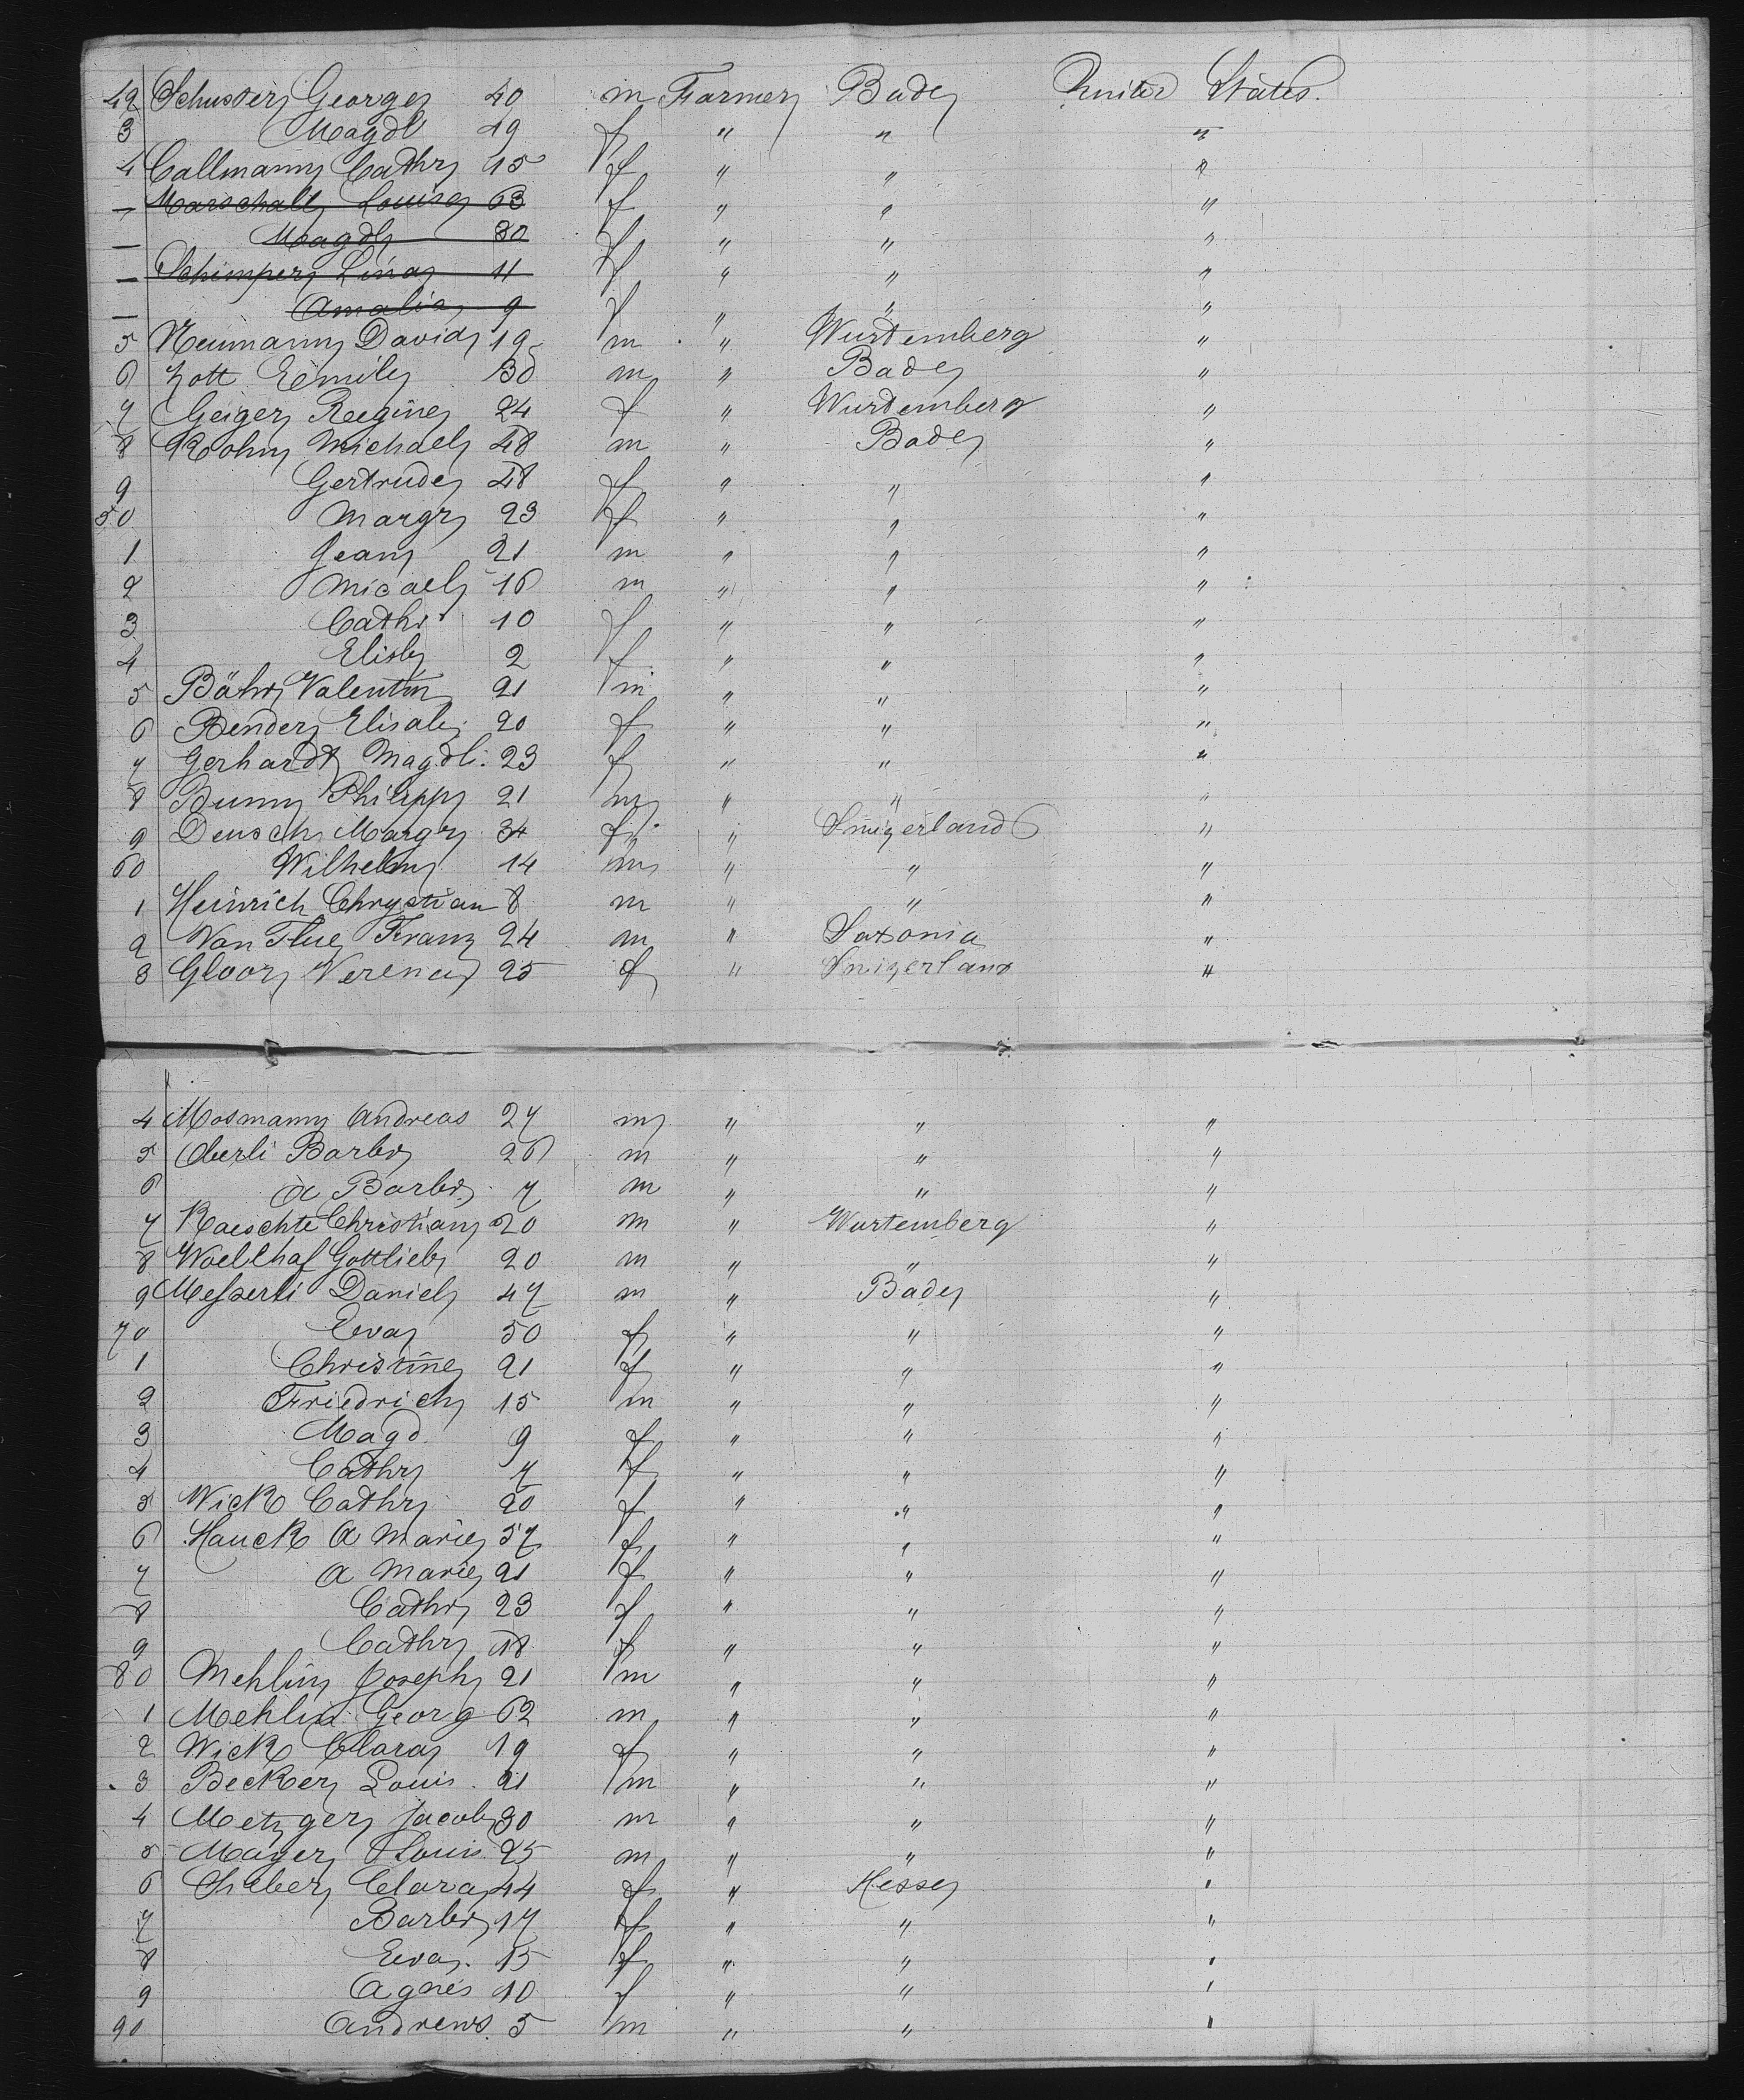 42 Schuster George 40 m Farmer Baden United States.
3 Magdl 49 f " " "
4 Callmann Cathr 15 f " " "
— Marschall Louise 63 f " " "
— Magdl 30 f " " "
— Schimper Lina 11 f " " "
— Amalia 9 f " " "
5 Neumann David 19 m " Wurtemberg "
6 Zott Emily 30 m " Baden "
7 Geiger Regine 24 f " Wurtemberg "
8 Kohn Michael 48 m " Baden "
9 Gertrude 48 f " " "
50 Margr 23 f " " "
1 Jean 21 m " " "
2 Micael 16 m " " "
3 Cathr 10 f " " "
4 Elisb 2 f " " "
5 Bähr Valentin 21 m " " "
6 Bender Elisab. 20 f " " "
7 Gerhardt Magdl. 23 f " " "
8 Bumm Philipp 21 m " " "
9 Deusch Margr 34 f " Switzerland "
60 Wilhelm 14 m " " "
1 Heinrich Chrystian 8 m " " "
2 Von Flue Franz 24 m " Saxonia "
3 Gloor Verena 25 f " Switzerland "
4 Mosmann Andreas 27 m " " "
5 Oberli Barbr 26 m " " "
6 A Barbr 7 m " " "
7 Raeschte Christian 20 m " Wurtemberg "
8 Woellhaf Gottlieb 20 m " " "
9 Messerli Daniel 47 m " Baden "
70 Eva 50 f " " "
1 Christine 21 f " " "
2 Friedrich 15 m " " "
3 Magd 9 f " " "
4 Cathr 7 f " " "
5 Wick Cathr 20 f " " "
6 Hauck A Marie 57 f " " "
7 A Marie 21 f " " "
8 Cathr 23 f " " "
9 Cathr 18 f " " "
80 Mehlin Joseph 21 m " " "
1 Mehlin Georg 62 m " " "
2 Wick Clara 19 f " " "
3 Becker Louis 21 m " " "
4 Metzger Jacob 30 m " " "
5 Mayer Louis 25 m " " "
6 Clara 44 f " Hessen "
7 Barbr 17 f " " "
8 Eva. 15 f " " "
9 Agnes 10 f " " "
90 Andrews. 5 m " " "